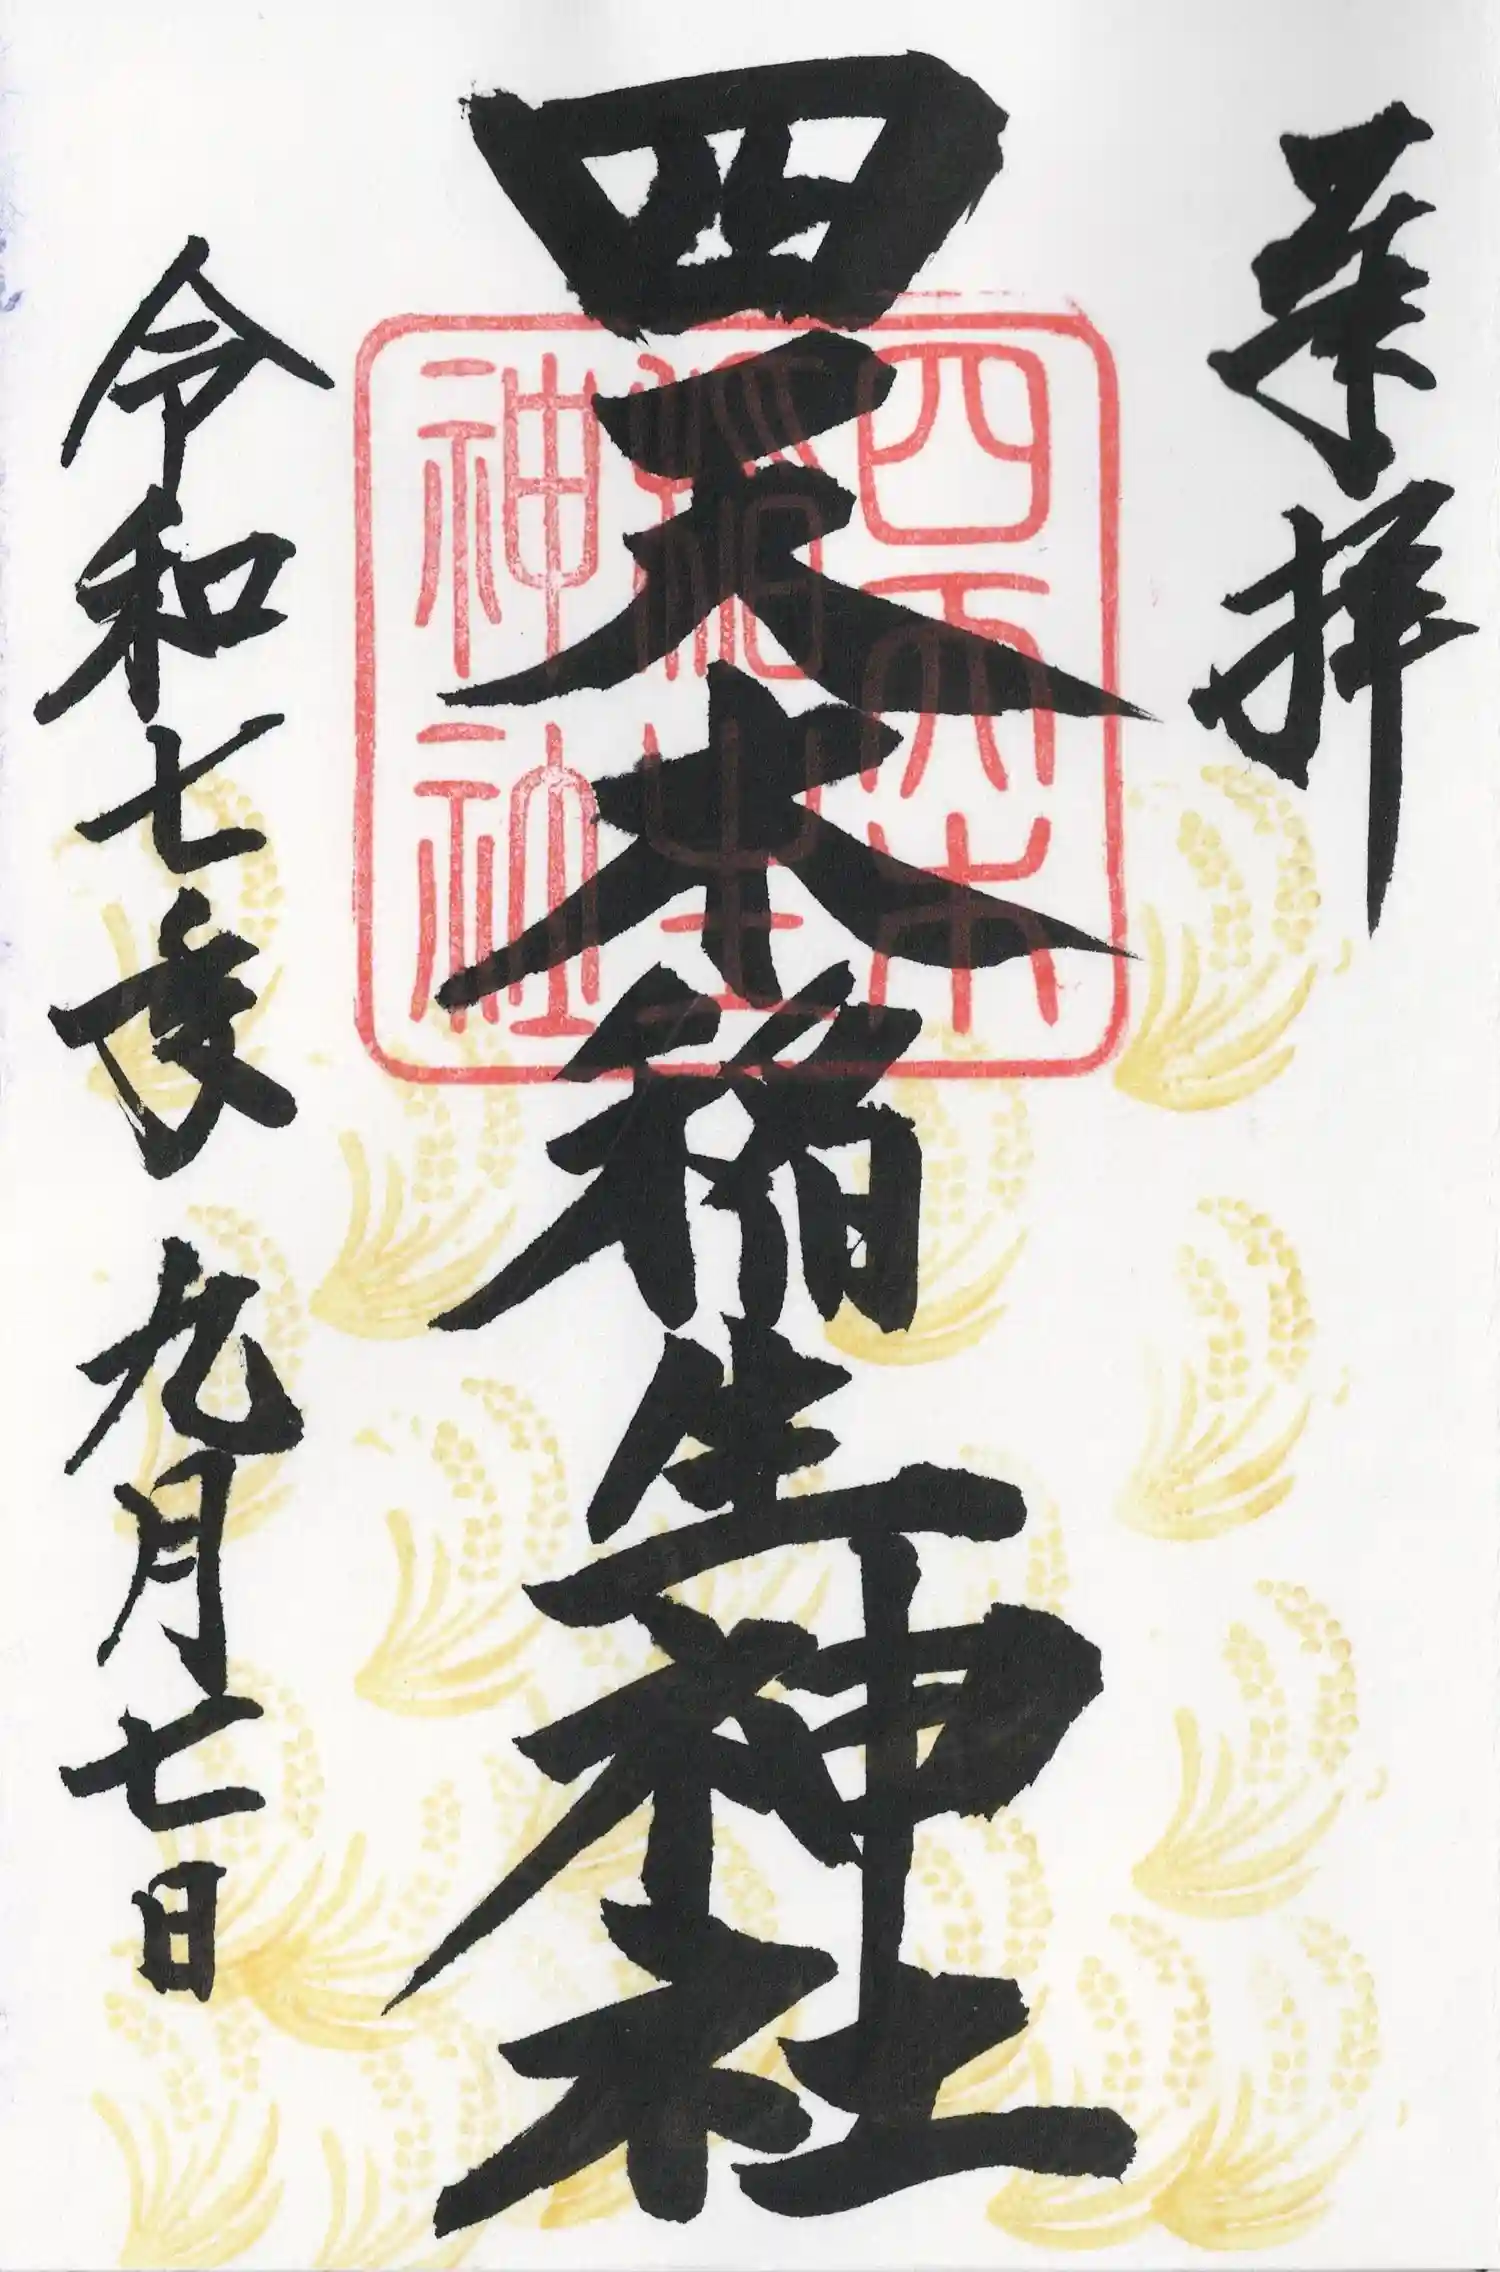 奉拝
四天木稲生神社
四天木
稲生
神社
令和七年九月七日